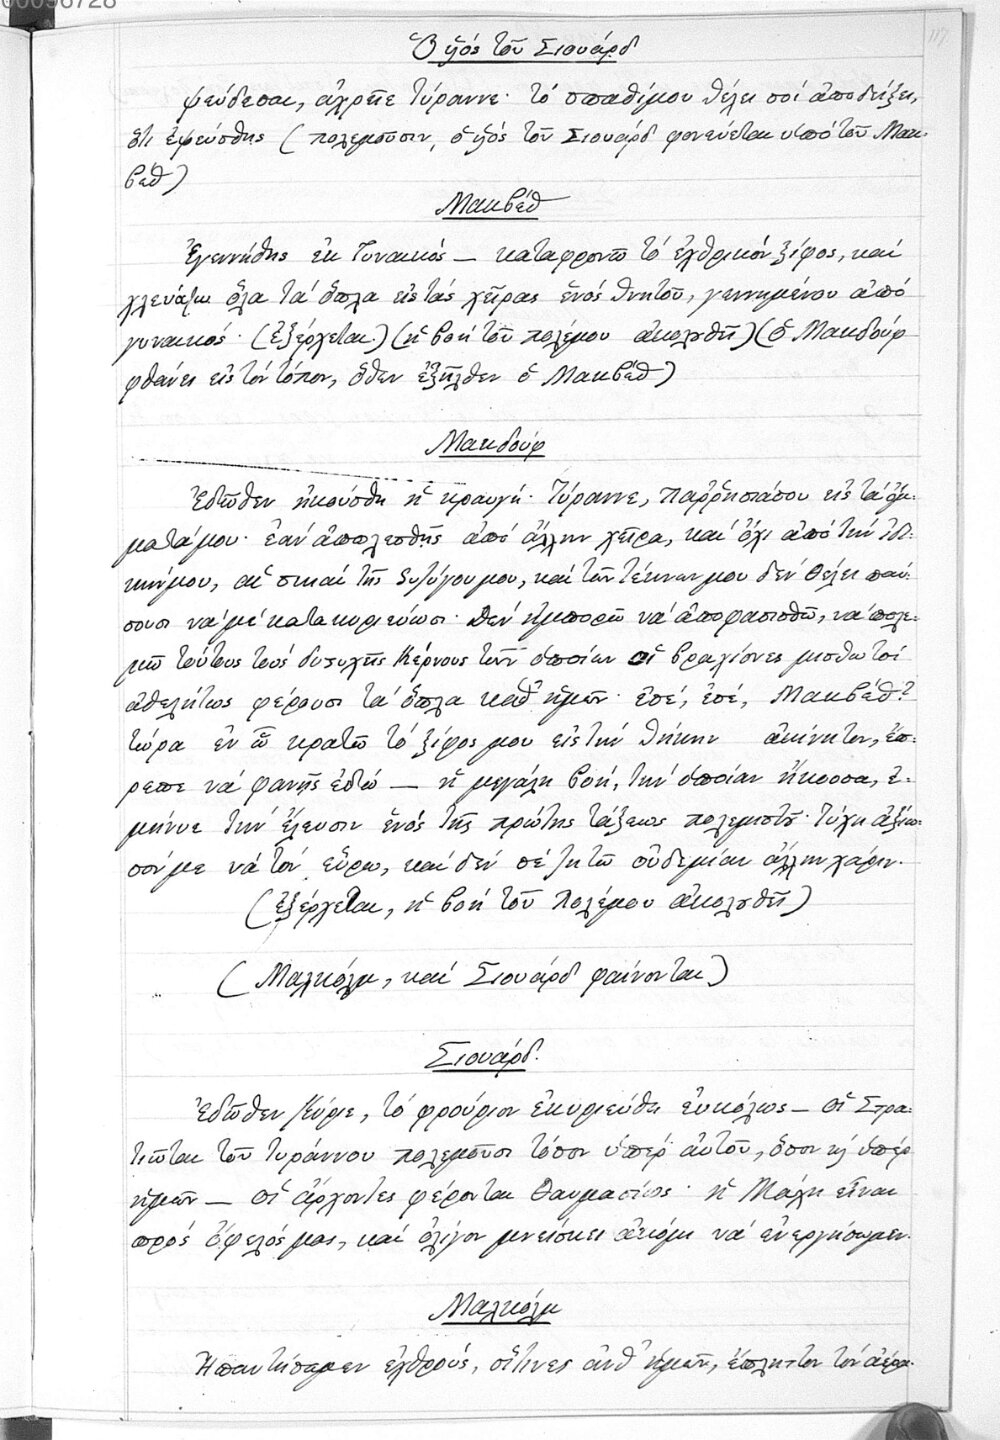 00096728
117
Ὁ υἱός τοῦ Σιουάρδ
ψεύδεσαι, ἀχρεῖε τύραννε· τό σπαθίμου θέλει σοί ἀποδείξει,
ὅτι ἐψεύσθης (πολεμοῦσιν, ὁ υἱός τοῦ Σιουάρδ φονεύεται ὑπό τοῦ Μακ-
βέθ)
Μακβέθ
Ἐγεννήθης ἐκ Γυναικός — καταφρονῶ τό ἐχθρικόν ξίφος, καί
χλευάζω ὅλα τά ὅπλα εἰς τάς χεῖρας ἑνός θνητοῦ, γεννημένου ἀπό
γυναικός· (ἐξέρχεται) (ἡ βοή τοῦ πολέμου ἀκολουθεῖ) (ὁ Μακδούφ
φθάνει εἰς τόν τόπον, ὅθεν ἐξῆλθεν ὁ Μακβέθ)
Μακδούφ
Ἐδῶθεν ἠκούσθη ἡ κραυγή· Τύραννε, παῤῥησιάσου εἰς τά ὄμ-
ματάμου· ἐάν ἀπολεσθῇς ἀπό ἄλλην χεῖρα, καί ὄχι ἀπό τήν ἐδι-
κήνμου, αἱ σκιαί τῆς συζύγου μου, καί τῶν τέκνων μου δέν θέλει παύ-
σουσι νά μέ κατακυριεύωσι· Δέν ἠμπορῶ νά ἀποφασισθῶ, νά πολε-
μῶ τούτους τούς δυστυχῆς Κέρνους τῶν ὁποίων οἱ βραχίονες μισθωτοί
ἀθελήτως φέρουσι τά ὅπλα καθ' ἡμῶν· ἐσέ, ἐσέ, Μακβέθ?
τώρα ἐν ᾧ κρατῶ τό ξίφος μου εἰς τήν θήκην ἀκίνητον, ἔπ-
ρεπε νά φανῇς ἐδώ — ἡ μεγάλη βοή, τήν ὁποίαν ἤκουσα, ἐ-
μήνυε τήν ἔλευσιν ἑνός τῆς πρώτης τάξεως πολεμιστοῦ· Τύχη ἀξίω-
σόνμε νά τόν εὕρω, καί δέν σέ ζητῶ οὐδεμίαν ἄλλην χάριν.
(ἐξέρχεται, ἡ βοή τοῦ Πολέμου ἀκολουθεῖ)
(Μαλκόλμ, καί Σιουάρδ φαίνονται)
Σιουάρδ.
Ἐδῶθεν Κύριε, τό φρούριον ἐκυριεύθη εὐκόλως — οἱ Στρα-
τιῶται τοῦ Τυράννου πολεμοῦσι τόσον ὑπέρ αὐτοῦ, ὅσον κ ὑπέρ
ἡμῶν — οἱ ἄρχοντες φέρονται θαυμασίως· ἡ Μάχη εἶναι
πρός ὄφελός μας, καί ὀλίγον μνείσκει ἀκόμη νά ἐνεργήσωμεν.
Μαλκόλμ
Ἠπαντήσαμεν ἐχθρούς, οἵτινες ἀνθ' ἡμῶν, ἔπληττον τόν ἀέρα·